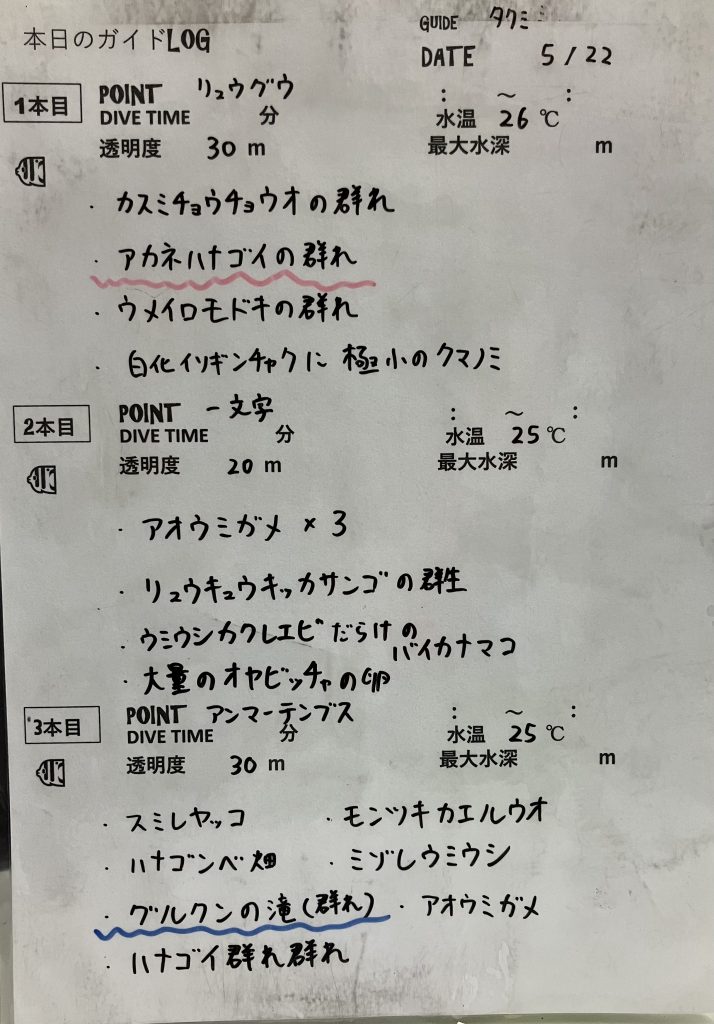 本日のガイドLOG
GUIDE タクミ
DATE 5/22
1本目 POINT リュウグウ : ～ :
DIVE TIME 分 水温 26 ℃
透明度 30 m 最大水深 m
・カスミチョウチョウオの群れ
・アカネハナゴイの群れ
・ウメイロモドキの群れ
・白化イソギンチャクに 極小のクマノミ
2本目 POINT 一文字 : ～ :
DIVE TIME 分 水温 25 ℃
透明度 20 m 最大水深 m
・アオウミガメ × 3
・リュウキュウキッカサンゴの群生
・ウミウシカクレエビだらけの
バイカナマコ
・大量のオヤビッチャの卵
3本目 POINT アンマーテンブス : ～ :
DIVE TIME 分 水温 25 ℃
透明度 30 m 最大水深 m
・スミレヤッコ ・モンツキカエルウオ
・ハナゴンベ畑 ・ミゾレウミウシ
・グルクンの滝(群れ) ・アオウミガメ
・ハナゴイ群れ群れ